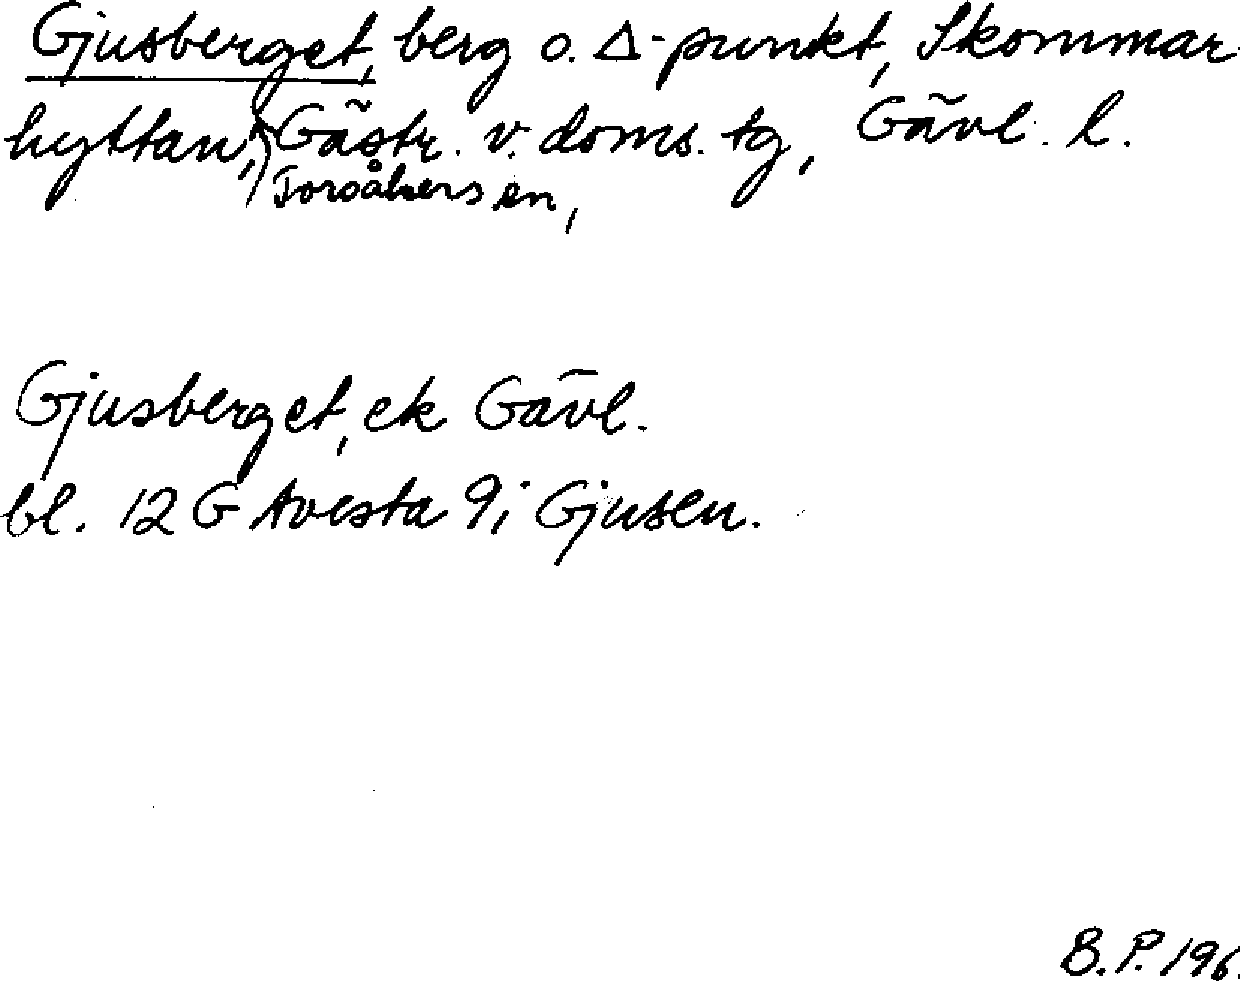 Gjusberget, berg o. Δ-punkt, Skommar
hyttan, Gästr. v. doms. tg, Gävl. l.
Torsåkers sn,
Gjusberget, ek Gävl.
bl. 12 G Avesta 9i Gjusen.
B.P. 196